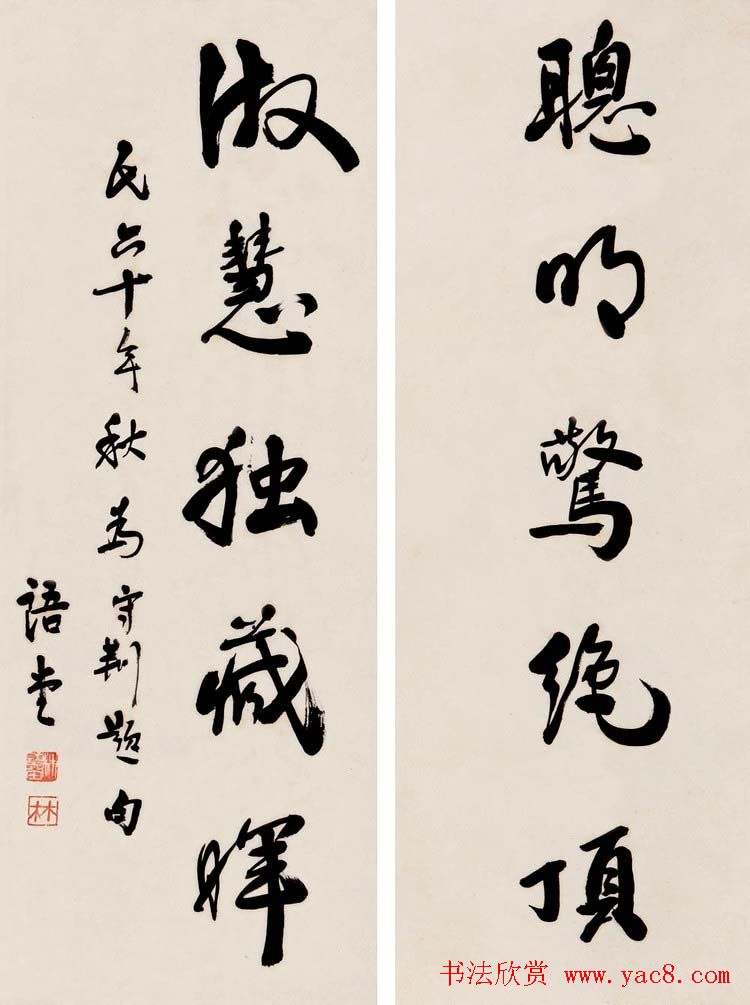 聰明驚絶頂
淑慧独藏暉
民六十年秋為守荆題句
語堂
林
书法欣赏 www.yac8.com